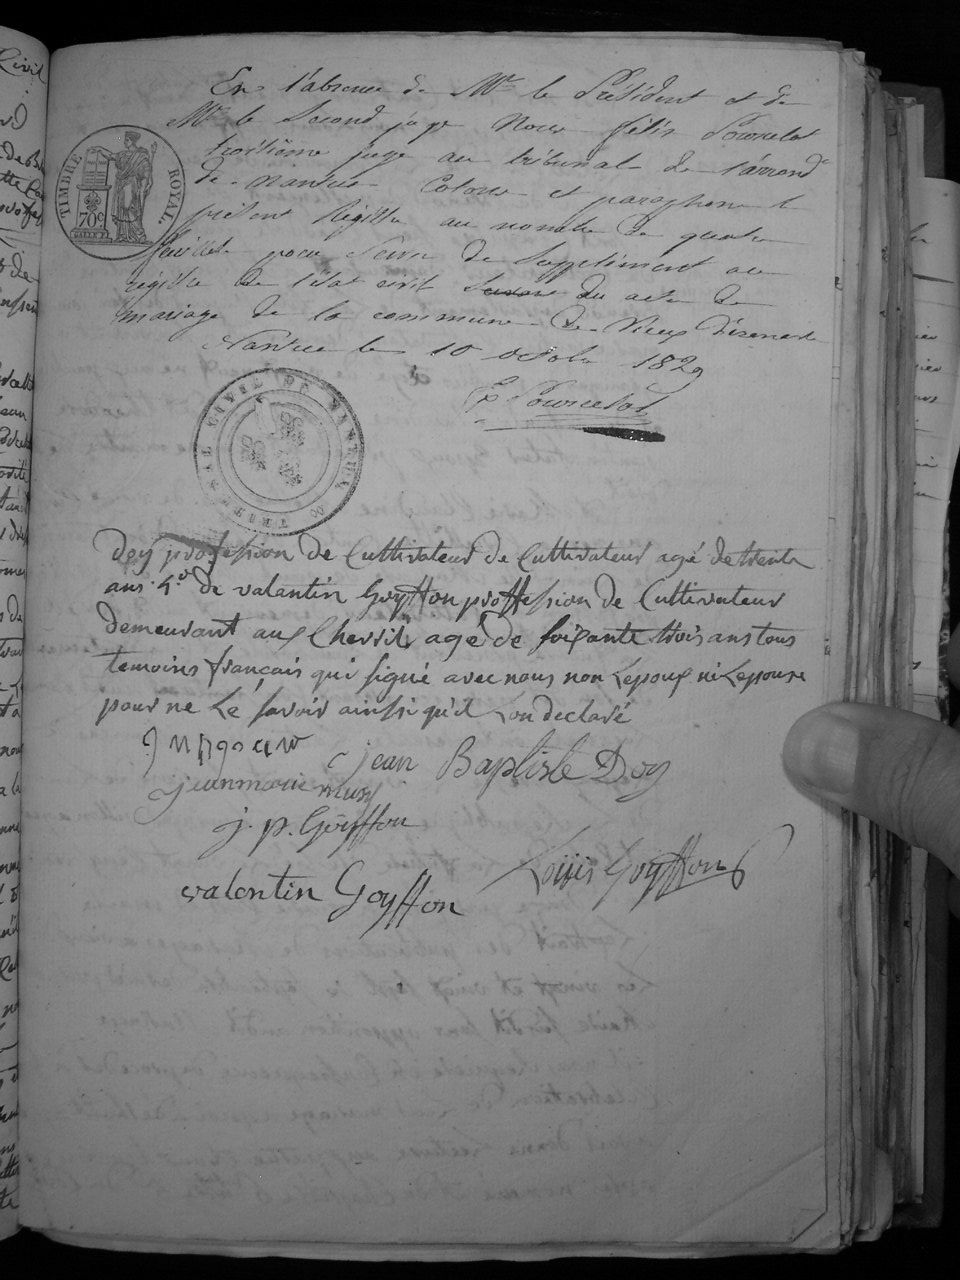 En l'absence de Mr le Président et de
Mr le Second juge Nous félix Pourcelot
troisième juge au tribunal de l'arrondt
de Nantua Cotons et paraphons le
présent Régistre au nombre de quatre
feuillets pour Servir de Supplément au
régistre de l'état civil des actes de
mariage de la commune de Vieux d'izenave
Nantua le 10 octobre 1829
F Pourcelot
TIMBRE ROYAL
70c
TRIBUNAL CIVIL DE NANTUA
Doy profession de Cultivateur de Cultivateur agé de trente
ans 4o de valantin Goyffon proffession de Cultivateur
demeurant aux Chevril agé de soixante trois ans tous
temoins français qui signé avec nous non Lepoux ni Lepouse
pour ne Le savoir ainsi qu'il Lon declaré
jean Baptiste Doy
jeanmarie
j. p. Goyffon
Louis Goyffon
valentin Goyffon